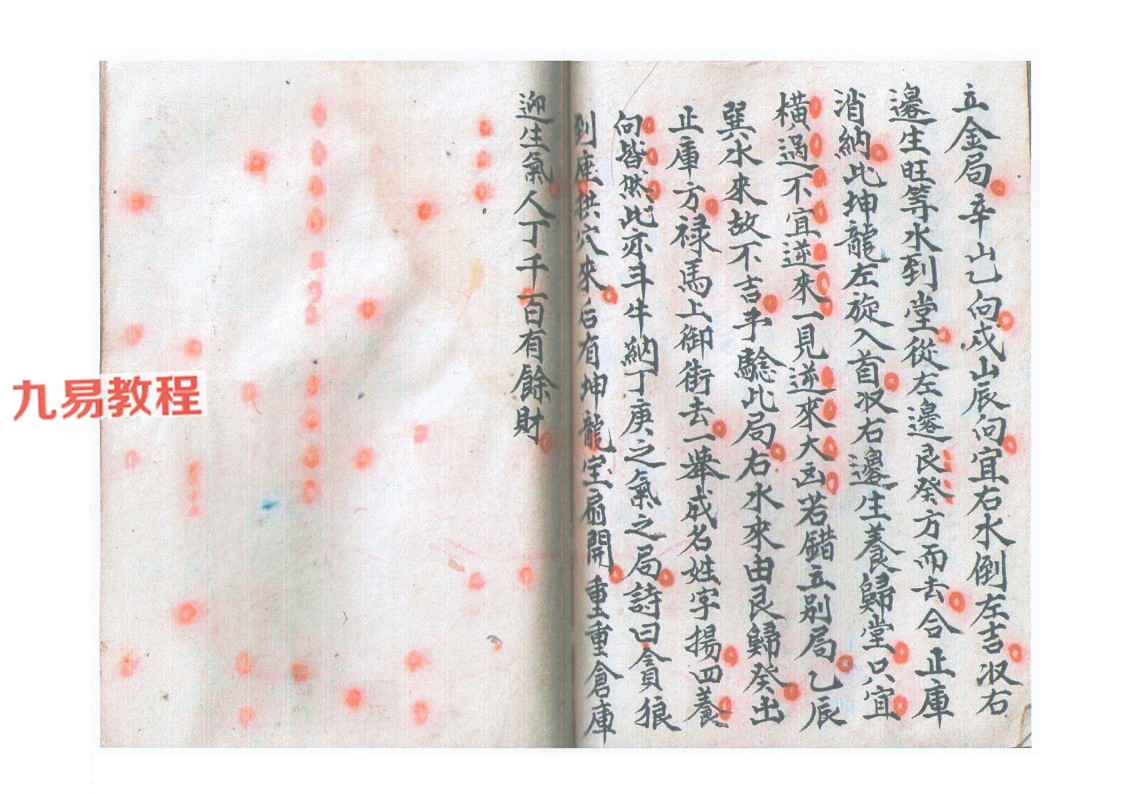 立金局辛山乙向戍山辰向宜右水倒左吉収右
邊生旺等水到堂從左邊艮癸方而去合正庫
消納此坤龍左旋入首収右邊生養歸堂只宜
橫過不宜逆來一見逆來大凶若錯立別局乙辰
巽水來故不吉予驗此局右水來由艮歸癸出
正庫方祿馬上御街去一舉成名姓字揚四養
向皆然此亦斗牛納丁庚之氣之局詩曰貪狼
到座拱穴來后有坤龍宝扇開重重倉庫
迎生氣人丁千百有餘財
九易教程